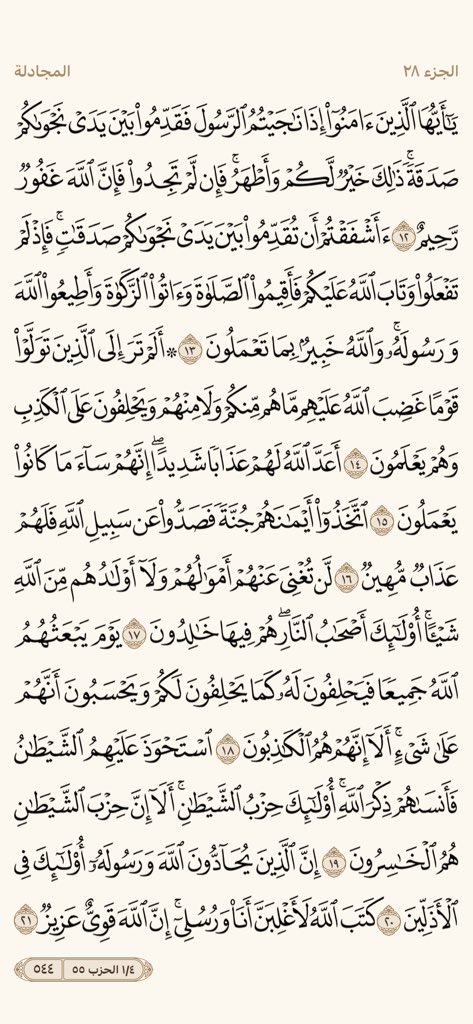 الجزء ٢٨
المجادلة
يَٰٓأَيُّهَا ٱلَّذِينَ ءَامَنُوٓا۟ إِذَا نَٰجَيْتُمُ ٱلرَّسُولَ فَقَدِّمُوا۟ بَيْنَ يَدَىْ نَجْوَىٰكُمْ
صَدَقَةً ۚ ذَٰلِكَ خَيْرٌ لَّكُمْ وَأَطْهَرُ ۚ فَإِن لَّمْ تَجِدُوا۟ فَإِنَّ ٱللَّهَ غَفُورٌ
رَّحِيمٌ ١٢ ءَأَشْفَقْتُمْ أَن تُقَدِّمُوا۟ بَيْنَ يَدَىْ نَجْوَىٰكُمْ صَدَقَٰتٍ ۚ فَإِذْ لَمْ
تَفْعَلُوا۟ وَتَابَ ٱللَّهُ عَلَيْكُمْ فَأَقِيمُوا۟ ٱلصَّلَوٰةَ وَءَاتُوا۟ ٱلزَّكَوٰةَ وَأَطِيعُوا۟ ٱللَّهَ
وَرَسُولَهُۥ ۚ وَٱللَّهُ خَبِيرٌۢ بِمَا تَعْمَلُونَ ١٣ ۞ أَلَمْ تَرَ إِلَى ٱلَّذِينَ تَوَلَّوْا۟
قَوْمًا غَضِبَ ٱللَّهُ عَلَيْهِم مَّا هُم مِّنكُمْ وَلَا مِنْهُمْ وَيَحْلِفُونَ عَلَى ٱلْكَذِبِ
وَهُمْ يَعْلَمُونَ ١٤ أَعَدَّ ٱللَّهُ لَهُمْ عَذَابًا شَدِيدًا ۖ إِنَّهُمْ سَآءَ مَا كَانُوا۟
يَعْمَلُونَ ١٥ ٱتَّخَذُوٓا۟ أَيْمَٰنَهُمْ جُنَّةً فَصَدُّوا۟ عَن سَبِيلِ ٱللَّهِ فَلَهُمْ
عَذَابٌ مُّهِينٌ ١٦ لَّن تُغْنِىَ عَنْهُمْ أَمْوَٰلُهُمْ وَلَآ أَوْلَٰدُهُم مِّنَ ٱللَّهِ
شَيْـًٔا ۚ أُو۟لَٰٓئِكَ أَصْحَٰبُ ٱلنَّارِ ۖ هُمْ فِيهَا خَٰلِدُونَ ١٧ يَوْمَ يَبْعَثُهُمُ
ٱللَّهُ جَمِيعًا فَيَحْلِفُونَ لَهُۥ كَمَا يَحْلِفُونَ لَكُمْ ۖ وَيَحْسَبُونَ أَنَّهُمْ
عَلَىٰ شَىْءٍ ۚ أَلَآ إِنَّهُمْ هُمُ ٱلْكَٰذِبُونَ ١٨ ٱسْتَحْوَذَ عَلَيْهِمُ ٱلشَّيْطَٰنُ
فَأَنسَىٰهُمْ ذِكْرَ ٱللَّهِ ۚ أُو۟لَٰٓئِكَ حِزْبُ ٱلشَّيْطَٰنِ ۚ أَلَآ إِنَّ حِزْبَ ٱلشَّيْطَٰنِ
هُمُ ٱلْخَٰسِرُونَ ١٩ إِنَّ ٱلَّذِينَ يُحَآدُّونَ ٱللَّهَ وَرَسُولَهُۥٓ أُو۟لَٰٓئِكَ فِى
ٱلْأَذَلِّينَ ٢٠ كَتَبَ ٱللَّهُ لَأَغْلِبَنَّ أَنَا۠ وَرُسُلِىٓ ۚ إِنَّ ٱللَّهَ قَوِىٌّ عَزِيزٌ ٢١
١/٤ الحزب ٥٥
٥٤٤